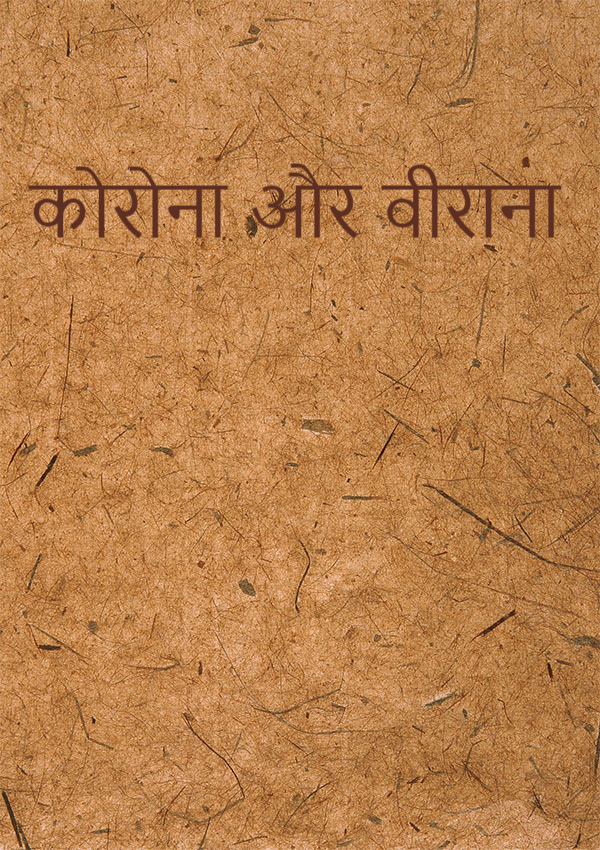 कोरोना और वीराना